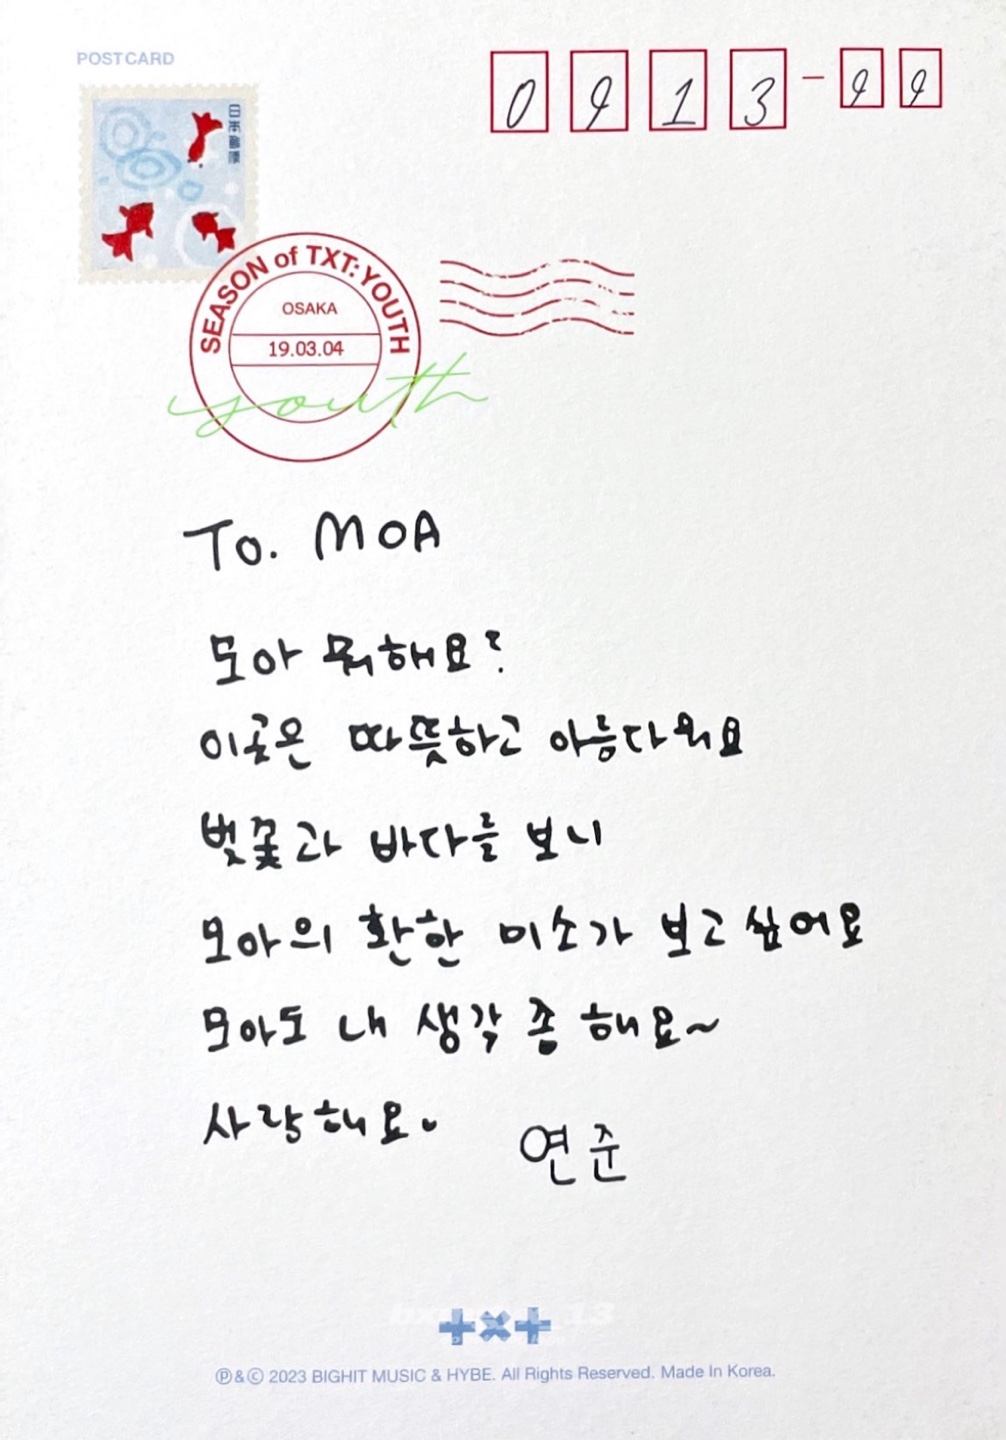 POSTCARD
0913-99
日本郵便
SEASON of TXT: YOUTH
OSAKA
19.03.04
youth
To. MOA
모아 뭐해요?
이곳은 따뜻하고 아름다워요
벚꽃과 바다를 보니
모아의 환한 미소가 보고싶어요
모아도 내 생각 좀 해요~
사랑해요
연준
+×+
Ⓟ&© 2023 BIGHIT MUSIC & HYBE. All Rights Reserved. Made In Korea.